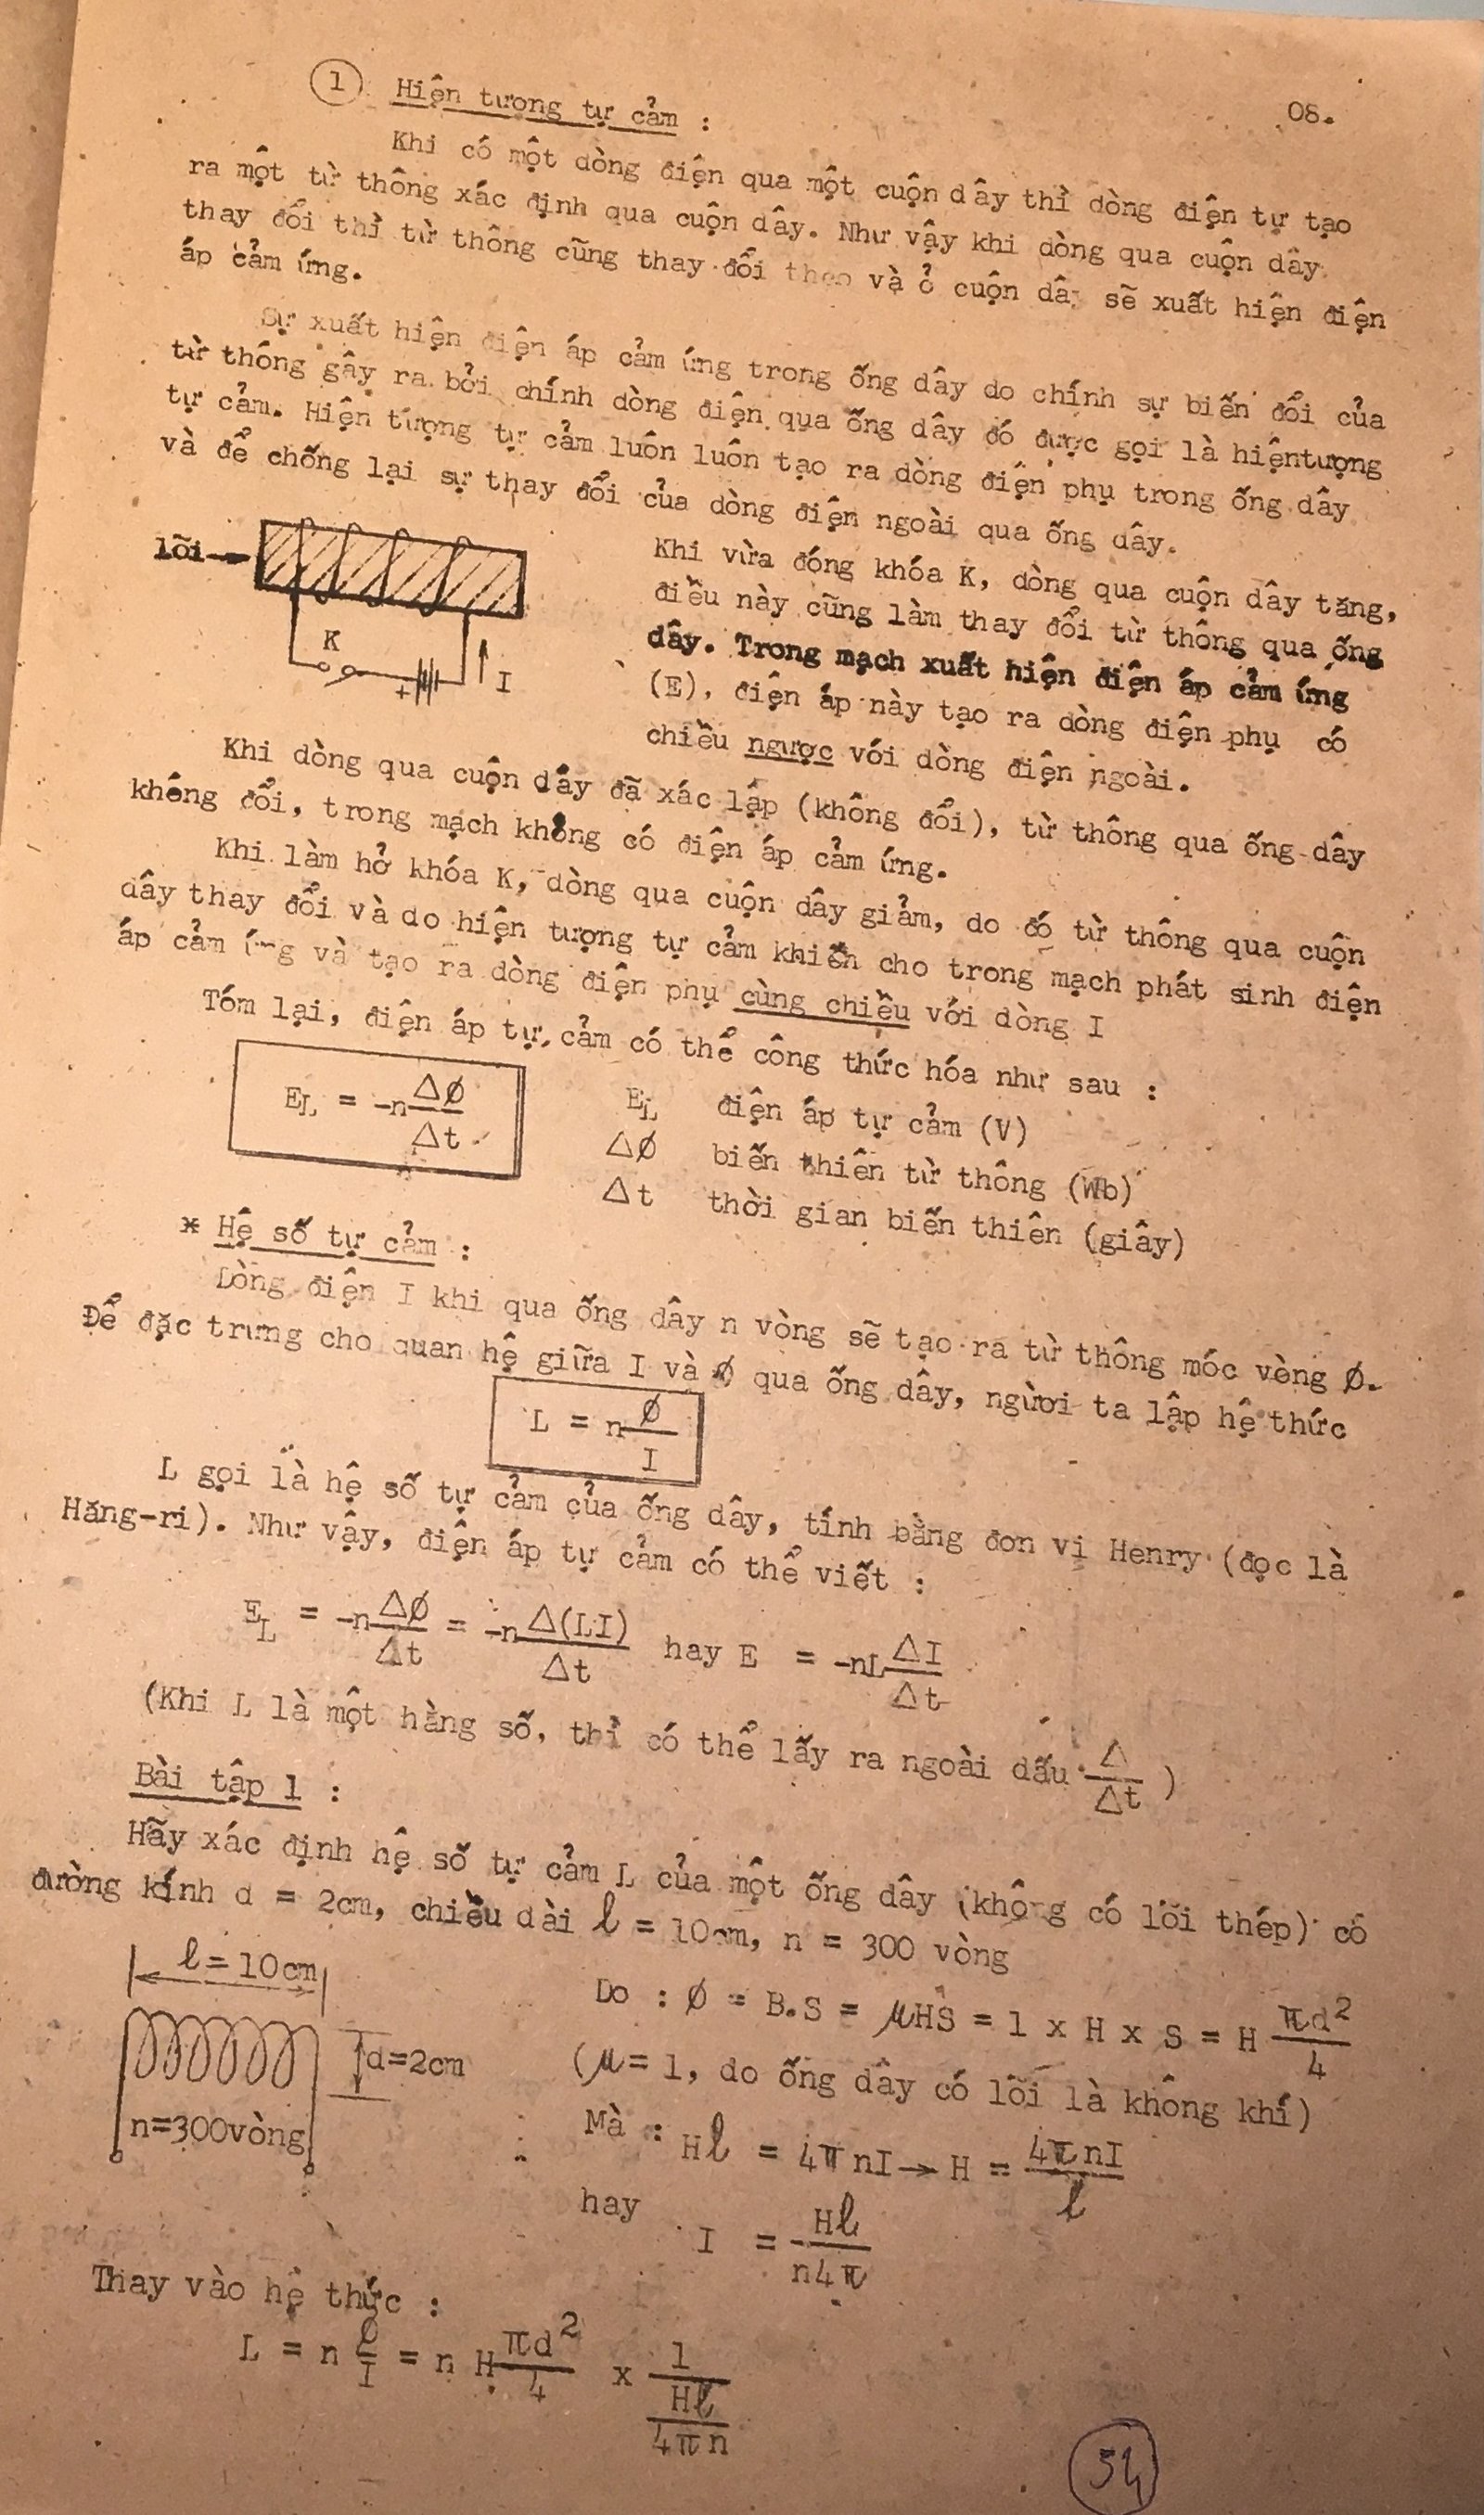 08.
1 Hiện tượng tự cảm :
Khi có một dòng điện qua một cuộn dây thì dòng điện tự tạo
ra một từ thông xác định qua cuộn dây. Như vậy khi dòng qua cuộn dây
thay đổi thì từ thông cũng thay đổi theo và ở cuộn dây sẽ xuất hiện điện
áp cảm ứng.
Sự xuất hiện điện áp cảm ứng trong ống dây do chính sự biến đổi của
từ thông gây ra bởi chính dòng điện qua ống dây đó được gọi là hiệntượng
tự cảm. Hiện tượng tự cảm luôn luôn tạo ra dòng điện phụ trong ống dây
và để chống lại sự thay đổi của dòng điện ngoài qua ống dây.
lõi
K
+
I
Khi vừa đóng khóa K, dòng qua cuộn dây tăng,
điều này cũng làm thay đổi từ thông qua ống
dây. Trong mạch xuất hiện điện áp cảm ứng
(E), điện áp này tạo ra dòng điện phụ có
chiều ngược với dòng điện ngoài.
Khi dòng qua cuộn dây đã xác lập (không đổi), từ thông qua ống dây
không đổi, trong mạch không có điện áp cảm ứng.
Khi làm hở khóa K, dòng qua cuộn dây giảm, do đó từ thông qua cuộn
dây thay đổi và do hiện tượng tự cảm khiến cho trong mạch phát sinh điện
áp cảm ứng và tạo ra dòng điện phụ cùng chiều với dòng I
Tóm lại, điện áp tự cảm có thể công thức hóa như sau :
E_L = -n ΔØ/Δt
E_L điện áp tự cảm (V)
ΔØ biến thiên từ thông (Wb)
Δt thời gian biến thiên (giây)
* Hệ số tự cảm :
Dòng điện I khi qua ống dây n vòng sẽ tạo ra từ thông móc vòng Ø.
Để đặc trưng cho quan hệ giữa I và Ø qua ống dây, người ta lập hệ thức
L = n Ø/I
L gọi là hệ số tự cảm của ống dây, tính bằng đơn vị Henry (đọc là
Hăng-ri). Như vậy, điện áp tự cảm có thể viết :
E_L = -n ΔØ/Δt = -n Δ(LI)/Δt hay E = -nL ΔI/Δt
(Khi L là một hằng số, thì có thể lấy ra ngoài dấu Δ/Δt )
Bài tập 1 :
Hãy xác định hệ số tự cảm L của một ống dây (không có lõi thép) có
đường kính d = 2cm, chiều dài ℓ = 10cm, n = 300 vòng
ℓ = 10cm
d=2cm
n=300vòng
Do : Ø = B.S = μHS = 1 x H x S = H πd²/4
(μ = 1, do ống dây có lõi là không khí)
Mà : Hℓ = 4π nI → H = 4π nI/ℓ
hay I = Hℓ/n4π
Thay vào hệ thức :
L = n Ø/I = n H πd²/4 x 1/(Hℓ/4πn)
54